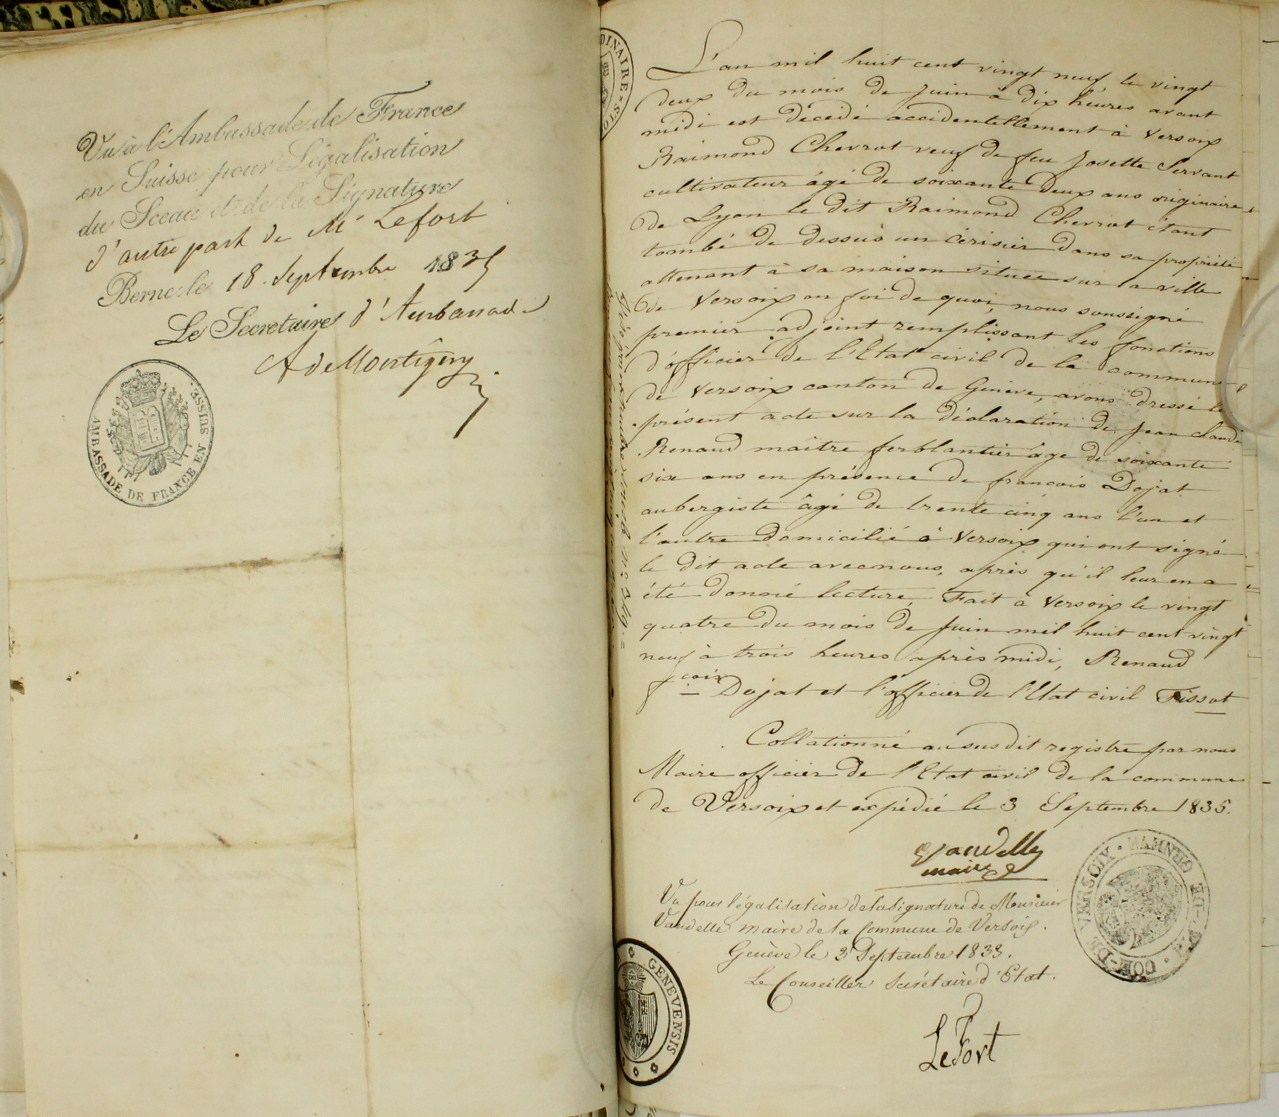 Vu à l'Ambassade de France
en Suisse pour Légalisation
du Sceau et de la Signature
d'autre part de Mr Lefort
Berne, le 18 Septembre 1835
Le Secretaire d'Ambassade
A de Montigny
AMBASSADE DE FRANCE EN SUISSE
L'an mil huit cent vingt neuf le vingt
deux du mois de Juin à dix heures avant
midi est décédé accidentellement à Versoix
Raimond Chevrot veuf de feu Josette Servant
cultivateur âgé de soixante deux ans originaire
de Lyon le dit Raimond Chevrot étant
tombé de dessus un cérisier dans sa propriété
attenant à sa maison située sur la ville
de Versoix en foi de quoi, nous soussigné
premier adjoint remplissant les fonctions
d'officier de l'Etat civil de la commune
de Versoix canton de Genève, avons dressé le
présent acte sur la déclaration de Jean Claude
Renaud maître ferblantier âgé de soixante
six ans en présence de françois Dojat
aubergiste âgé de trente cinq ans l'un et
l'autre domicilié à Versoix qui ont signé
le dit acte avec nous, après qu'il leur en a
été donné lecture, Fait à Versoix le vingt
quatre du mois de Juin mil huit cent vingt
neuf à trois heures après midi, Renaud
fcois Dojat et l'officier de l'Etat civil Tissot
Collationné au susdit registre par nous
Maire officier de l'Etat civil de la commune
de Versoix et expédié le 3 Septembre 1835.
Vandelle
maire
Vu pour légalisation de la signature de Monsieur
Vandelle maire de la Commune de Versoix.
Genève le 3 Septembre 1835.
Le Conseiller Secrétaire d'Etat.
LeFort
COM. DE VERSOIX
GENEVENSIS